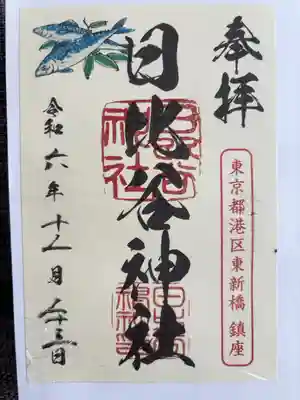 奉拝
東京都港区東新橋 鎮座
日比谷神社
令和六年十一月二十三日